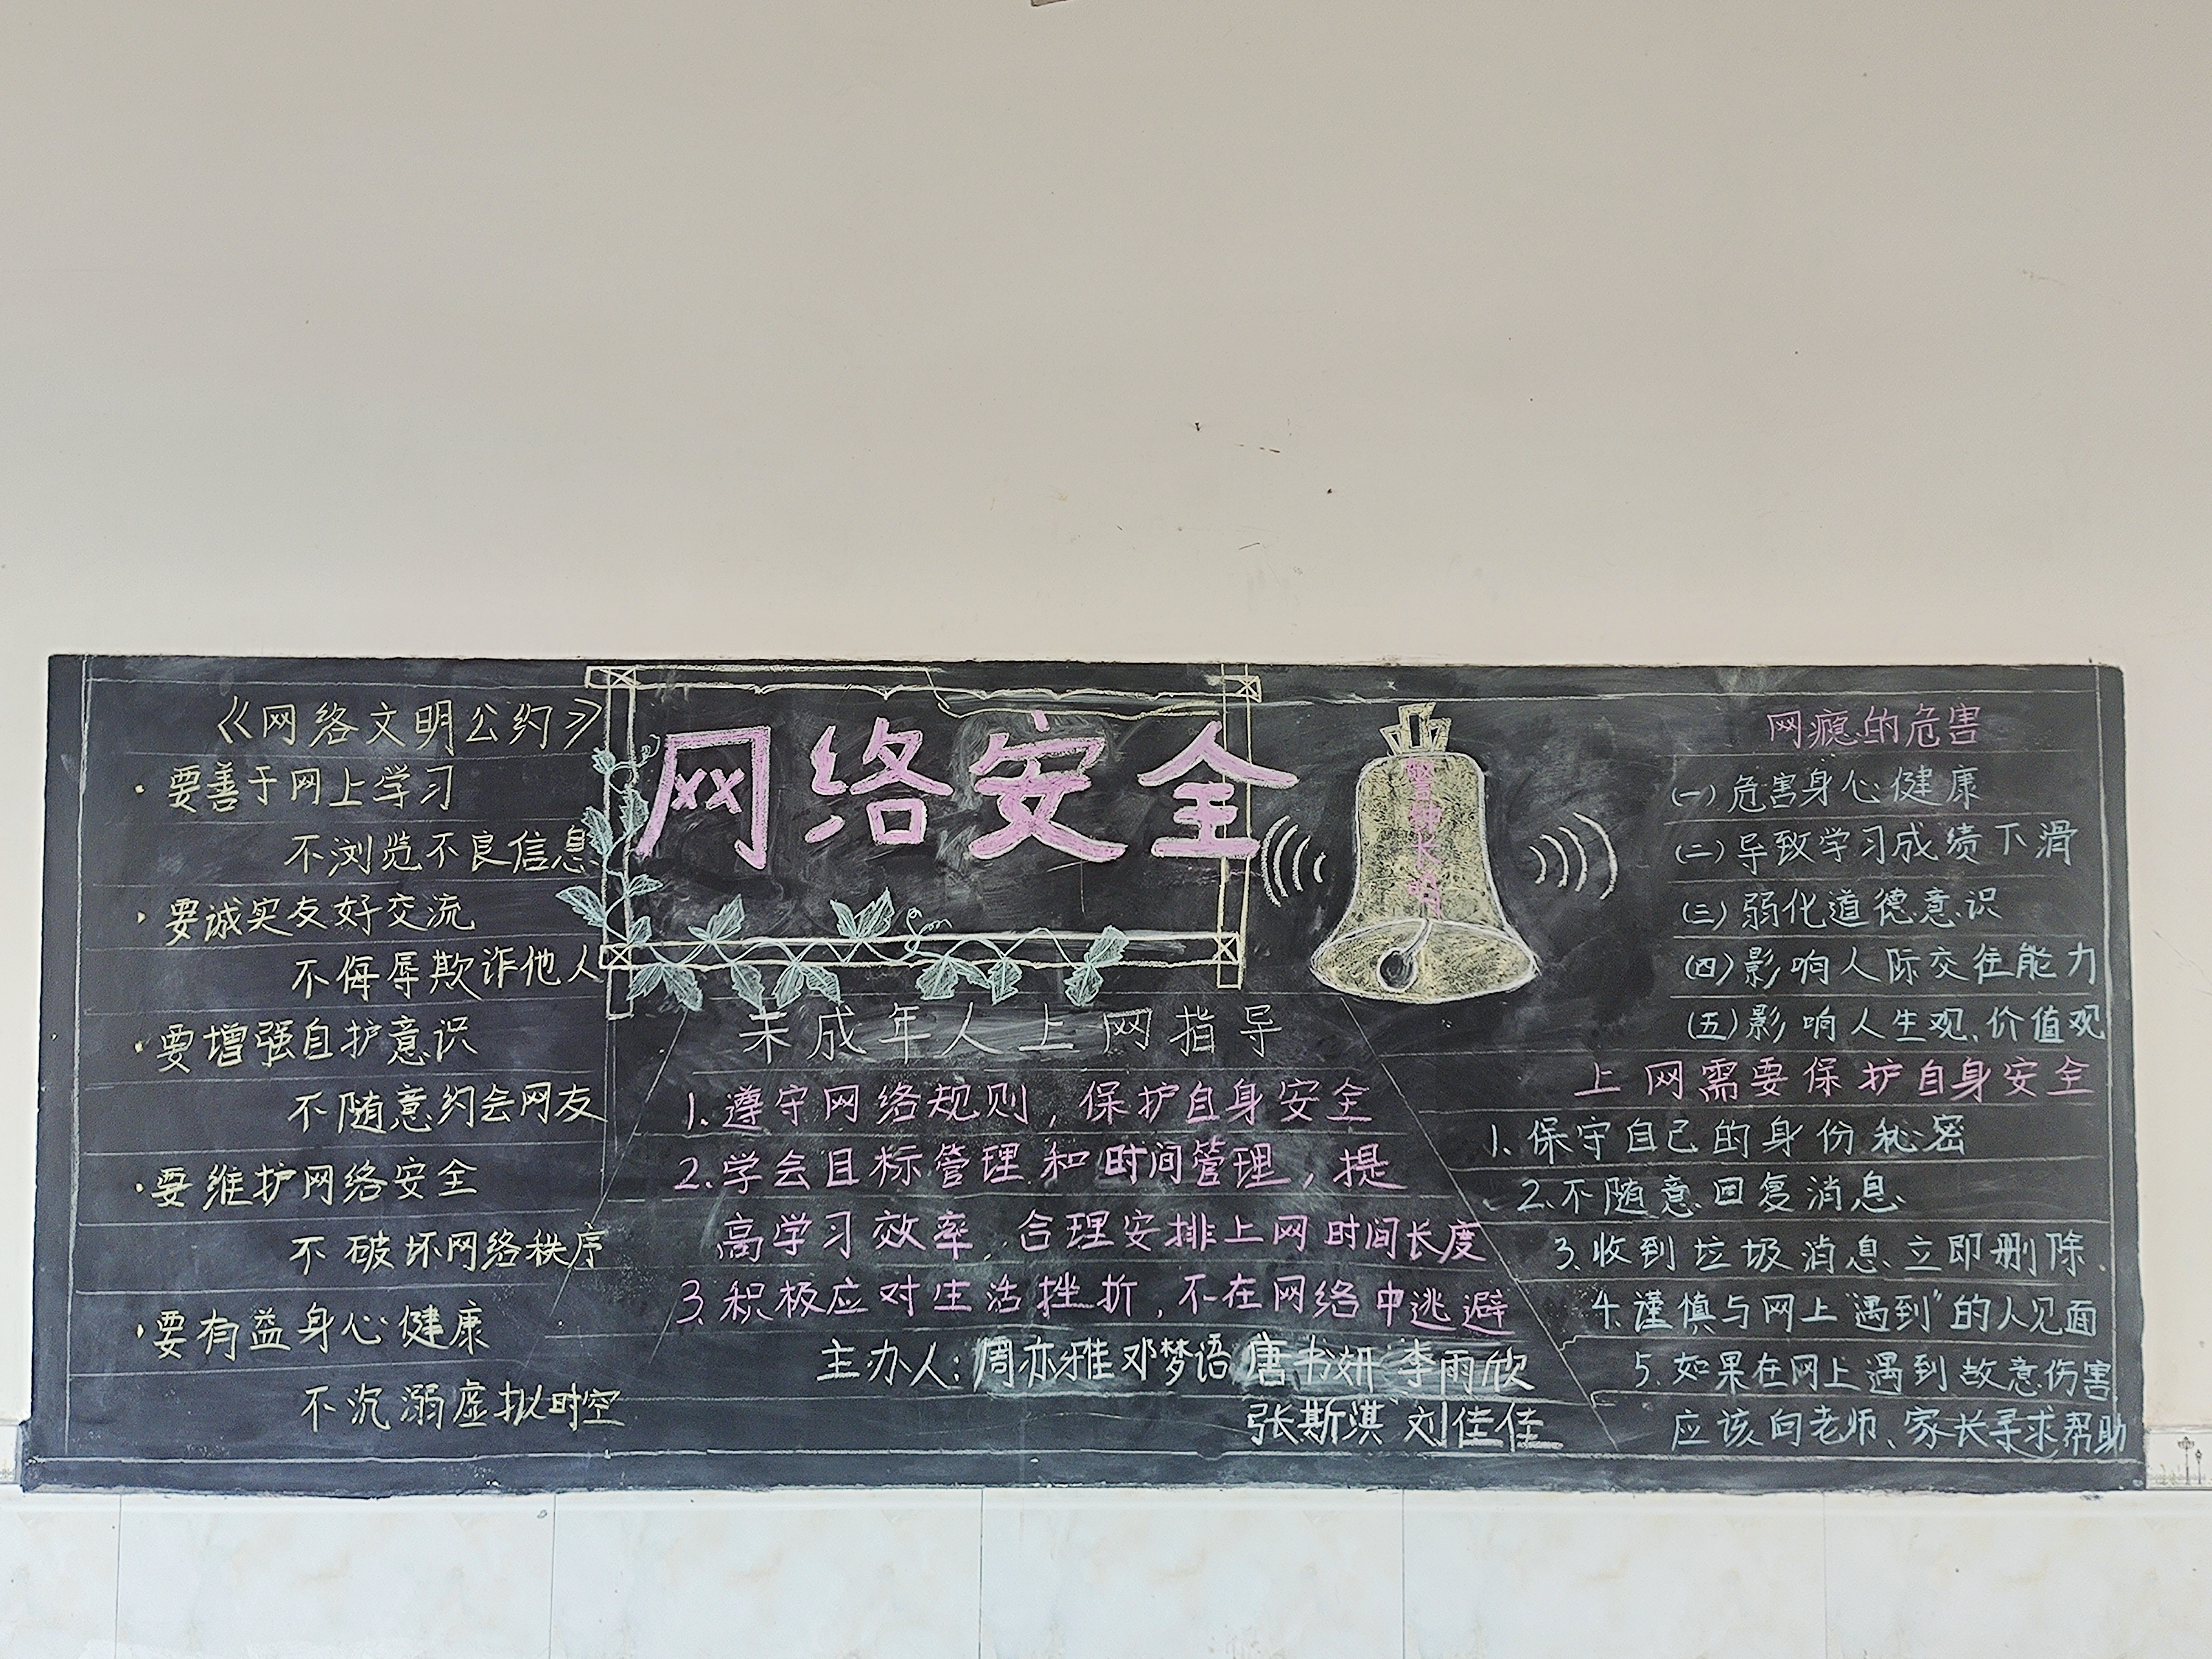 《网络文明公约》
·要善于网上学习
不浏览不良信息
·要诚实友好交流
不侮辱欺诈他人
·要增强自护意识
不随意约会网友
·要维护网络安全
不破坏网络秩序
·要有益身心健康
不沉溺虚拟时空
网络安全
警钟长鸣
未成年人上网指导
1.遵守网络规则，保护自身安全
2.学会目标管理和时间管理，提
高学习效率，合理安排上网时间长度
3.积极应对生活挫折，不在网络中逃避
主办人：周亦雅 邓梦语 唐书妍 李雨欣
张斯淇 刘佳佳
网瘾的危害
(一)危害身心健康
(二)导致学习成绩下滑
(三)弱化道德意识
(四)影响人际交往能力
(五)影响人生观、价值观
上网需要保护自身安全
1.保守自己的身份秘密
2.不随意回复消息
3.收到垃圾消息立即删除、
4.谨慎与网上“遇到”的人见面
5.如果在网上遇到故意伤害
应该向老师、家长寻求帮助